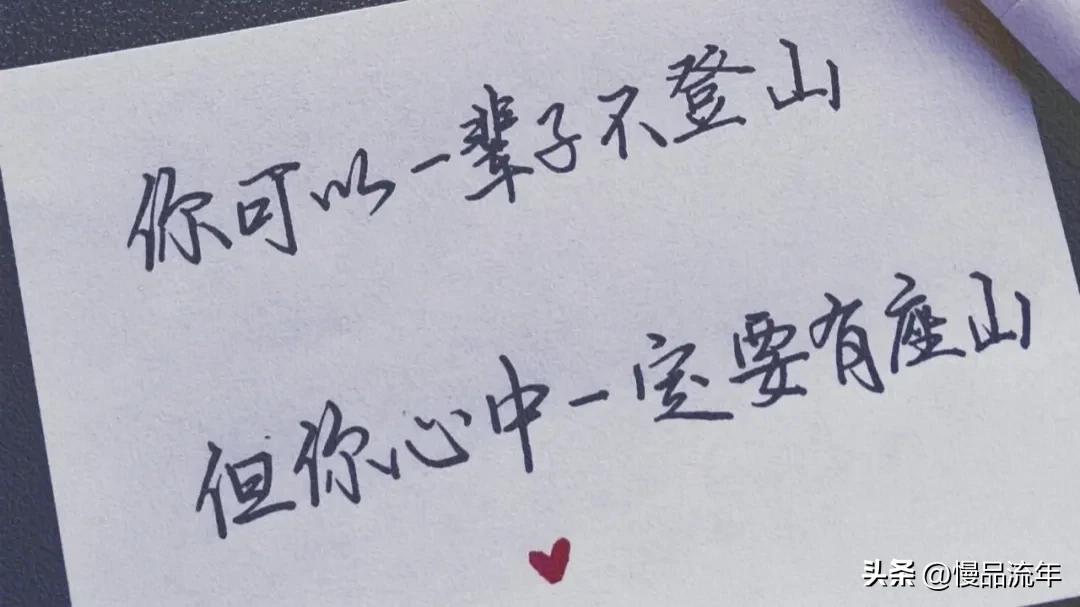 你可以一辈子不登山
但你心中一定要有座山
头条 @慢品流年